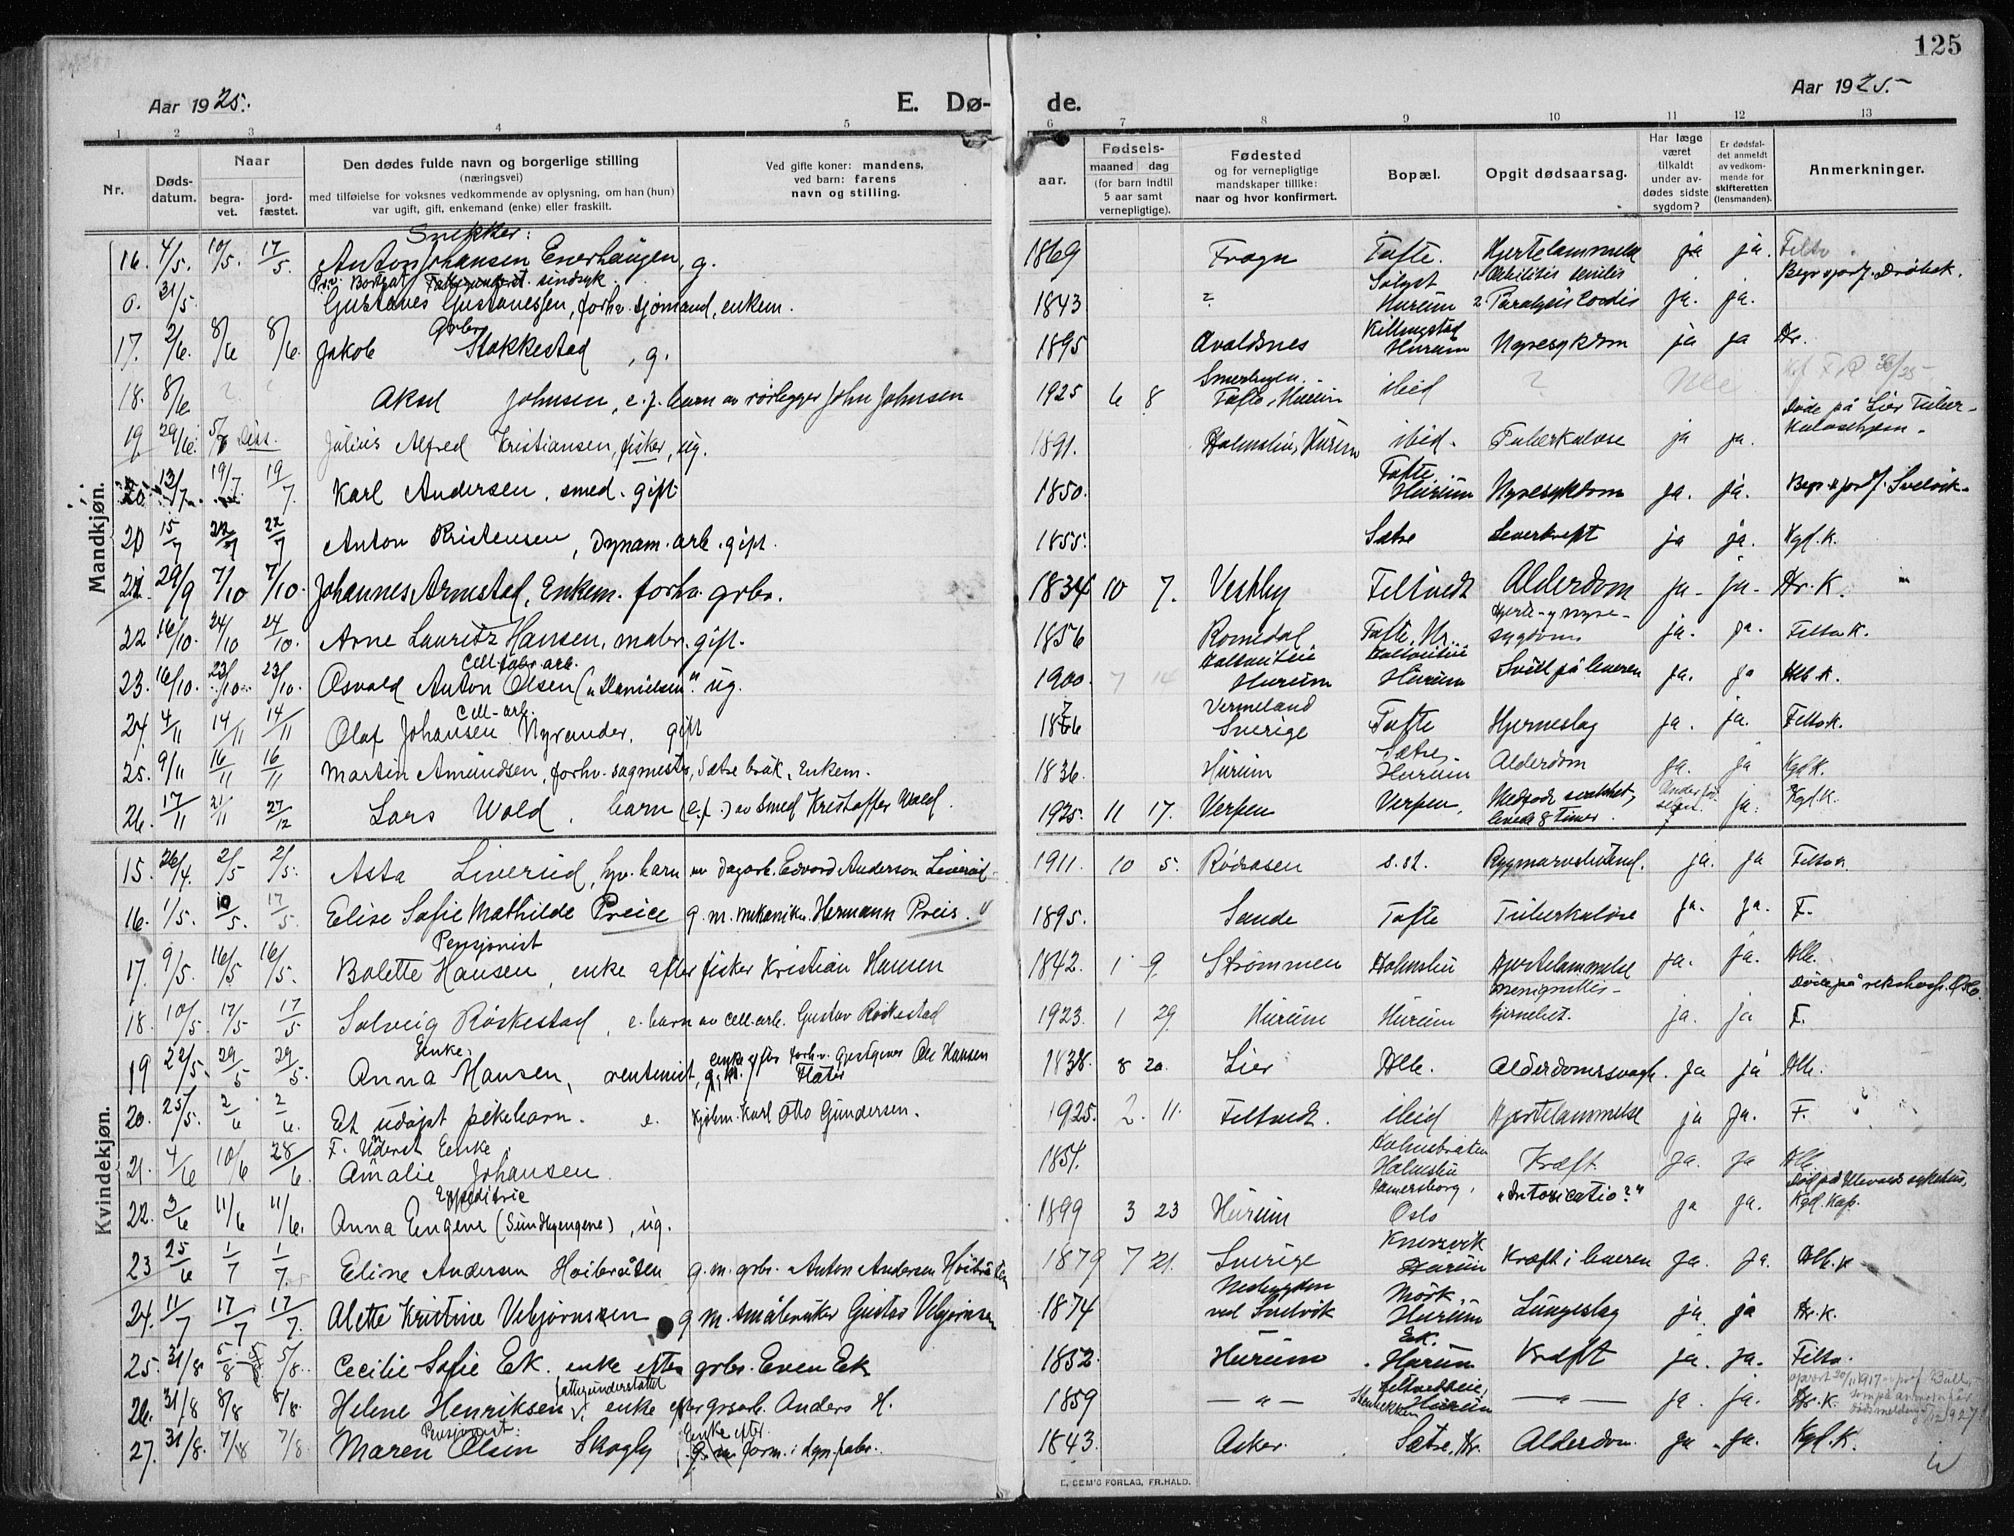 125
Aar 1925.
E. Dø-
de.
Aar 1925.-
1 2 3 4 5 6 7 8 9 10 11 12 13
Nr.
Døds-
datum.
Naar
begra-
vet.
jord-
fæstet.
Den dødes fulde navn og borgerlige stilling
(næringsvei)
med tilføielse for voksnes vedkommende av oplysning, om han (hun)
var ugift, gift, enkemand (enke) eller fraskilt.
Ved gifte koner: mandens,
ved barn: farens
navn og stilling.
aar.
Fødsels-
maaned dag
(for barn indtil
5 aar samt
vernepligtige).
Fødested
og for vernepligtige
mandskaper tillike:
naar og hvor konfirmert.
Bopæl.
Opgit dødsaarsag.
Har læge
været
tilkaldt
under av-
dødes sidste
sygdom?
Er dødsfal-
det anmeldt
av vedkom-
mende for
skifteretten
(lensmanden).
Anmerkninger.
Mandkjøn.
Snekker:
16. 4/5. 10/5. 17/5 Anton Johansen Enerhaugen, g. 1869 Fragn Tofte. Hjertelammelse ja ja. Filtv.
sindsyk.
0. 31/5. Gustaves Gustavessen, forhv. sjømand, enkem. 1843 ? Hurum Paralysis Cordis ja. ja. Begr. & jordf. Drøbak.
Grbr.
17. 2/6. 8/6 8/6. Jakob Stokkestad, g. 1895 Avaldsnes Killingstad Hurum Nyresykdom ja ja Hr.
18. 8/6 ? ? Aksel Johnsen, e. f. barn av rørlegger John Johnsen 1925 6 8 Tofte, Hurum ibid ?
19. 29/6. 5/7 Diss. Julius Alfred Kristiansen, fisker, ug. 1891. Holmsbu, Hurum ibid. Tuberkulose ja ja. Døde på Lier Tuber-
kulosehjem.
20. 13/7. 19/7. 19/7. Karl Andersen, smed. gift 1850. Tofte, Hurum Nyresykdom ja. ja. Begr. & jordf. i Svelvik.
20 15/7 22/7 22/7 Anton Kristensen, Dynam. arb. gift. 1855. Sætre Leverkreft ja ja. Kgl. K.
21 29/9 7/10 7/10. Johannes Armstad, Enkem. forhv. grbr. 1834 10 7. Vestby Filtvedt Alderdom ja. ja. Hr. K.
22 16/10. 24/10 24/10. Arne Lauritz Hansen, malar, gift. 1856 Romedal Tofte, Hr. Hjerte- og nyre-
sygdom ja. ja. Filtv. K.
Cell. fabr. arb.
23. 16/10. 23/10. 23/10. Osvald Anton Olsen („Danielsen“) ug. 1900. 7 14 Hurum Hurum Svull på leveren ja. ja Hlb. K.
Cell. arb.
24. 4/11 14/11 14/11 Olaf Johansen Nyrander, gift 1866 Vermeland
Sverige Tofte Hjerneslag ja. ja. Filtv. K.
25. 9/11 16/11 16/11 Martin Amundsen, forhv. sagmester, Sætre bruk, Enkem. 1836. Hurum Sætre, Hurum Alderdom ja. ja Kgl. K.
26. 17/11 21/11 27/12 Lars Wold, barn (e. f.) av Smed Kristoffer Wold. 1925. 11 17. Verpen Verpen, Medfødt svakhet,
levede 8 timer. ja. Kgl. K.
Kvindekjøn.
15. 26/4. 2/5 2/5. Asta Liverud, hpv. barn av Dagarb. Edvard Anderson Liverud 1911. 10 5. Rødåsen s. st. Rygmarvslidend. ja. ja Filtv.
16. 1/5. 10/5. 17/5 Elise Sofie Mathilde Preice g. m. mekaniker Hermann Preis. 1895. Sande Tofte Tuberkulose ja. ja. F.
Pensjonist
17. 9/5. 16/5 16/5. Bolette Hansen, enke efter fisker Kristian Hansen 1842. 1 9. Strømmen Holmsbu Hjertelammelse ja. ja. Hlb.
18. 10/5. 17/5 17/5 Solveig Røskestad, e. barn av cell. arb. Gustav Røskestad 1923. 1 29 Hurum Hurum ja. ja F.
Enke.
19 22/5. 29/5 29/5. Anna Hansen, rentenist, enke efter forhv. Gjestgiver Ole Hansen 1838. 8 20. Lier Hlb. Alderdomssvagh. ja ja Hlb.
20. 25/5. 2/6 2/6. Et udøpt pikebarn. e. Kjøbm. Karl Otto Gundersen. 1925. 2. 11. Filtvedt. ibid Hjertelammelse ja ja. F.
Enke
21. 4/6 10/6 28/6 Amalie Johansen. 1854. Holmsbu Kræft ja. ja Hlb.
Død på Ullevaals sykehus,
Ekspeditrice
22. 3/6 11/6 11/6. Anna Engene (Sundbyengene), ug. 1899 3 23 Hurum Oslo „Intoxicatio?“ ja ja. Kgl. Kap.
23 25/6 1/7 1/7. Eline Andersen Høibråten g. m. grbr. Anton Andersen Høibråten 1879 7 21. Sverige Hurum Kræft i leveren ja. ja. Hlb. K
24. 11/7 17/7 17/7. Alette Kristine Vebjørnsen g. m. småbruker Gustav Vebjørnsen 1874 ved Svelvik Mörk, Hurum Lungeslag ja ja Hr. K.
25. 31/8 5/8 5/8. Cecilie Sofie Eek. enke efter grbr. Even Eek 1852. Hurum Ek. Hurum Kræft ja. ja. Filtv.
fattigunderstøttet
26. 31/8 8/8 8/8. Helene Henriksen, enke efter Anders H. 1859 — „ — Filtvedteie, Hurum — „ — ja. ja. Hr. K.
Pensjonist: Enke efter
27. 31/8. 7/8 7/8. Maren Olsen Skogly g. m form. i dyn. fabr. 1843. Asker. Sætre, Hr. Alderdom. ja. ja. Kgl. K.
E. SEM'S FORLAG, FR.HALD.